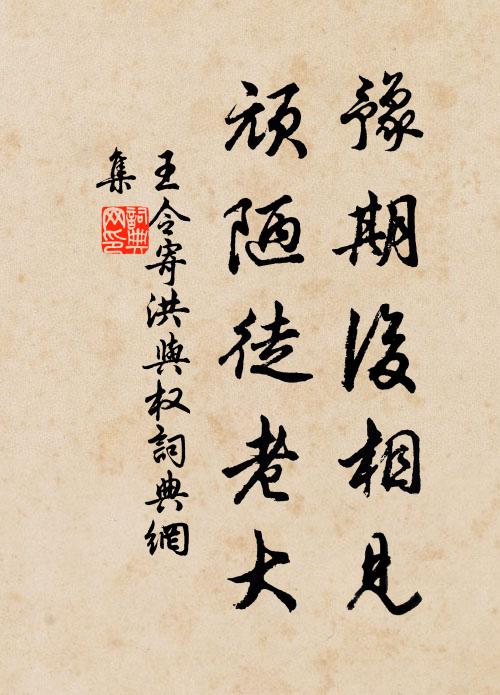 豫期後相見
頑陋徒老大
王令寄洪與权詞典網
集
詞典網印